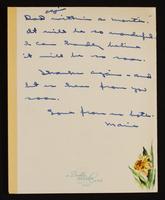 again
Dad within a month.
It will be so wonderful
I can hardly believe
it will be so soon.
Thanks again - and
let us hear from you
soon.
Love from us both.
Marie